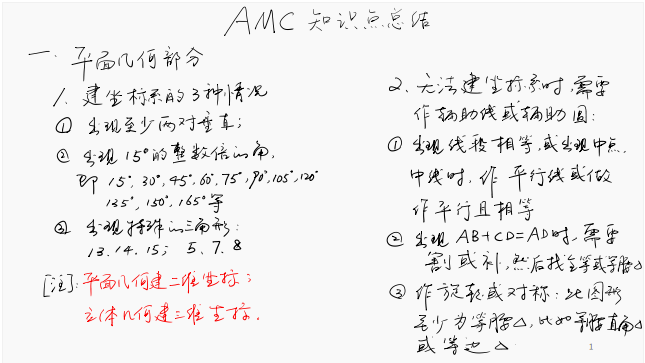 AMC 知识点总结
一. 平面几何部分
1. 建坐标系的3种情况
① 出现至少两对垂直;
② 出现15°的整数倍的角,
即 15°, 30°, 45°, 60°, 75°, 90°, 105°, 120°
135°, 150°, 165°等
③ 出现特殊的三角形:
13. 14. 15; 5、7、8
[注]: 平面几何建二维坐标;
立体几何建三维坐标.
2. 无法建坐标系时, 需要
作辅助线或辅助圆:
① 出现线段相等, 或出现中点,
中线时, 作平行线或做
作平行且相等
② 出现 AB+CD=AD时, 需要
割或补, 然后找全等或等腰△
③ 作旋转或对称: 此图形
至少为等腰△, 比如等腰直角△
或等边△
1